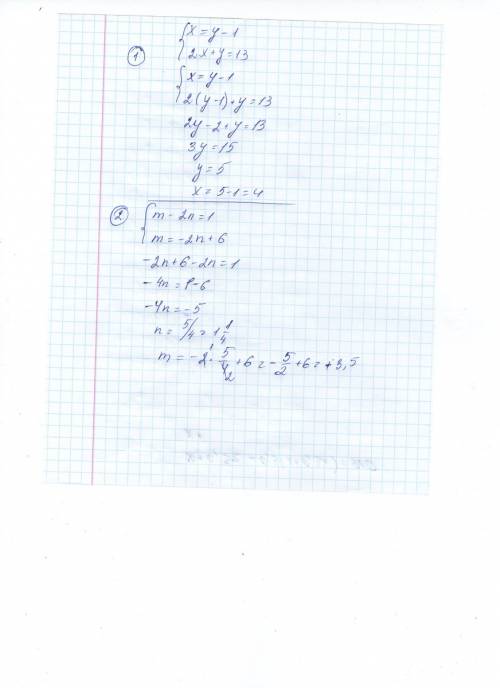 ① { x = y - 1
2x + y = 13
{ x = y - 1
2(y - 1) + y = 13
2y - 2 + y = 13
3y = 15
y = 5
x = 5 - 1 = 4
② { m - 2n = 1
m = -2n + 6
-2n + 6 - 2n = 1
-4n = 1 - 6
-4n = -5
n = 5/4 = 1 1/4
m = -2 · 5/4 + 6 = -5/2 + 6 = +3,5